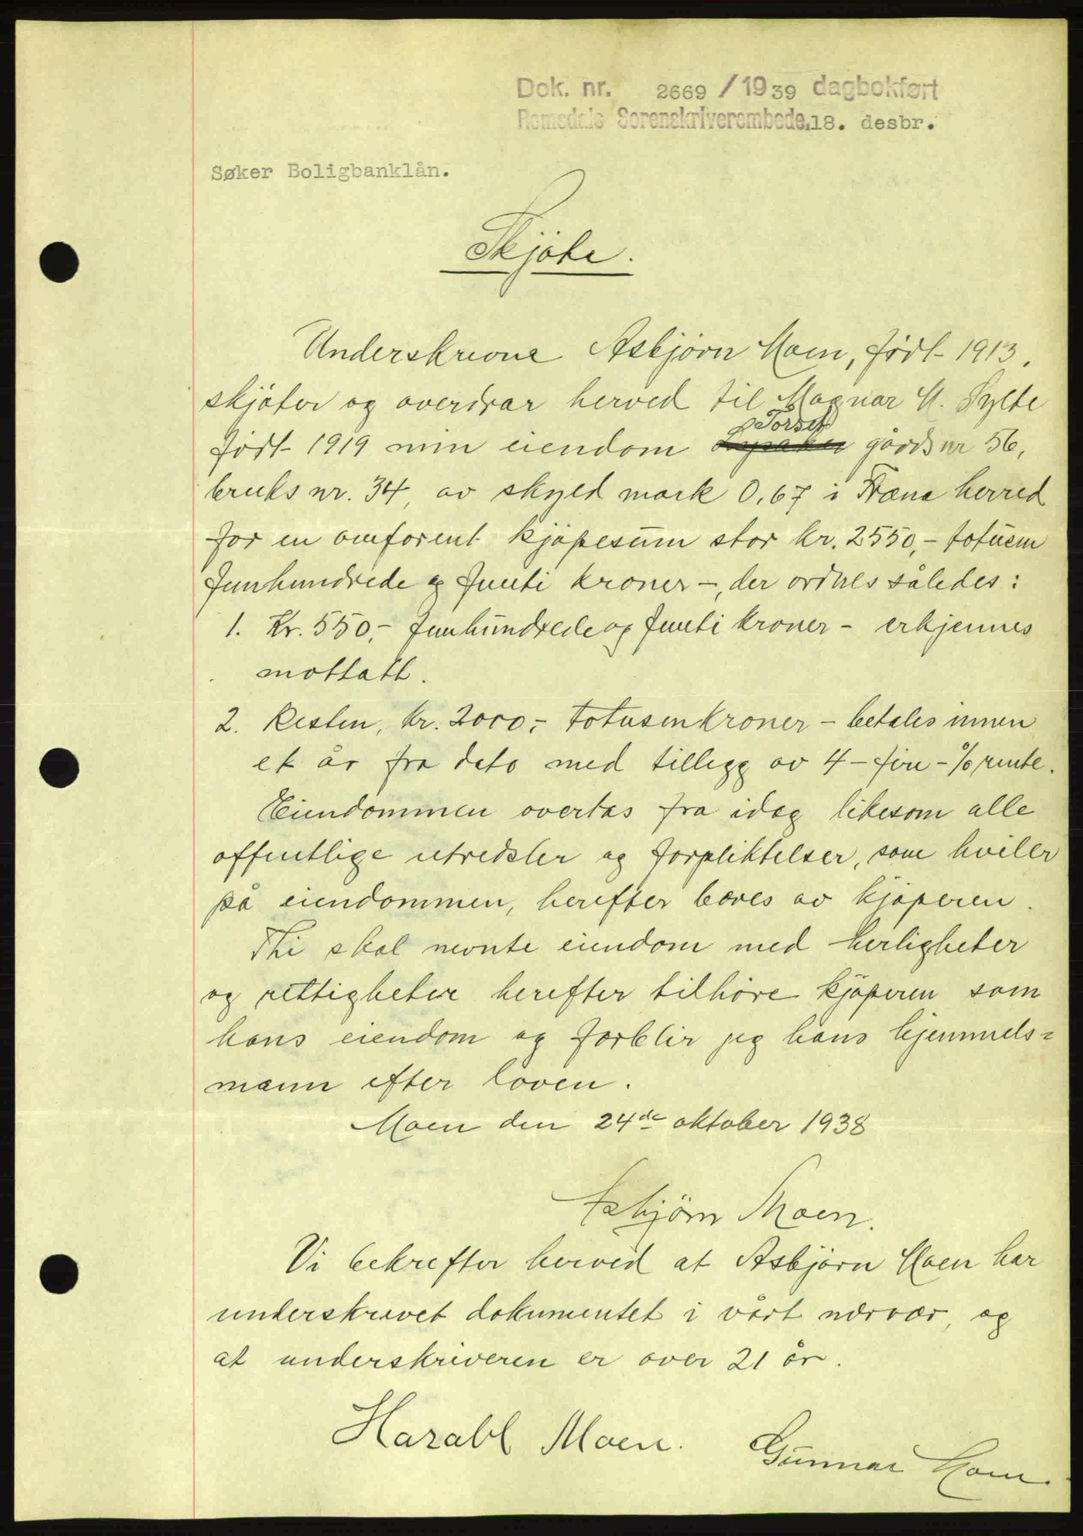 Dok. nr. 2669 / 1939 dagbokført
Romsdals Sorenskriverembede, 18. desbr.
Søker Boligbanklån.
Skjøte.
Underskrevne Asbjørn Moen, født 1913,
skjøter og overdrar herved til Magnar M. Sylte
Torset
født 1919 min eiendom gårdsnr 56,
bruks nr. 34, av skyld mark 0,67 i Fræna herred
for en omforent kjøpesum stor kr. 2550,- totusen
femhundrede og femti kroner -, der ordnes således:
1. Kr. 550,- femhundrede og femti kroner - erkjennes
mottatt.
2. Resten, kr. 2000,- totusenkroner - betales innen
et år fra dato med tillegg av 4 - fire - % rente.
Eiendommen overtas fra idag likesom alle
offentlige utredsler og forpliktelser, som hviler
på eiendommen, herefter bæres av kjøperen.
Thi skal nevnte eiendom med herligheter
og rettigheter herefter tilhøre kjøperen som
hans eiendom og forblir jeg hans hjemmels=
mann efter loven.
Moen den 24de oktober 1938
Asbjørn Moen.
Vi bekrefter herved at Asbjørn Moen har
underskrevet dokumentet i vårt nærvær, og
at underskriveren er over 21 år.
Harald Moen. Gunnar Moen.